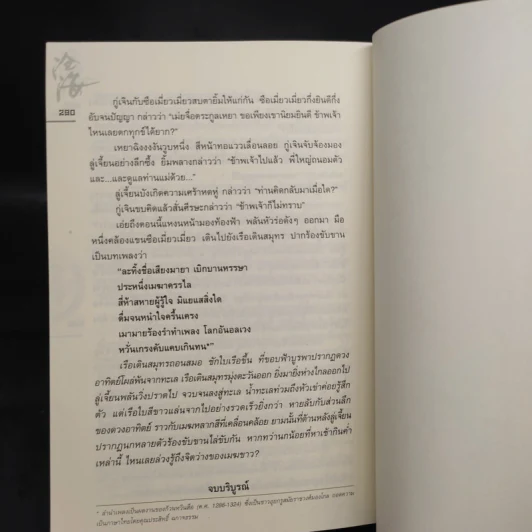 290
กู่เจินกับซือเมี่ยวเมี่ยวสบตายิ้มให้แก่กัน ซือเมี่ยวเมี่ยวกึ่งยินดีกึ่ง
อับจนปัญญา กล่าวว่า "เมื่อจือตระกูลเหยา ขอเพียงเขานิยมยินดี ข้าพเจ้า
ไหนเลยตกทุกข์ได้ยาก?"
เหยาฉิงงงงันวูบหนึ่ง สีหน้าทอแววเลื่อนลอย กู่เจินจับจ้องมอง
ลู่เจี้ยนอย่างลึกซึ้ง ยิ้มพลางกล่าวว่า "ข้าพเจ้าไปแล้ว พี่ใหญ่ถนอมตัว
และ...และดูแลท่านแม่ด้วย..."
ลู่เจี้ยนบังเกิดความเศร้าหดหู่ กล่าวว่า "ท่านคิดกลับมาเมื่อใด?"
กู่เจินขบคิดแล้วสั่นศีรษะกล่าวว่า "ข้าพเจ้าก็ไม่ทราบ"
เอ่ยถึงตอนนี้แหงนหน้ามองท้องฟ้า พลันหัวร่อดังๆ ออกมา มือ
หนึ่งคล้องแขนซือเมี่ยวเมี่ยว เดินไปยังเรือเดินสมุทร ปากร้องขับขาน
เป็นบทเพลงว่า
"ละทิ้งชื่อเสียงมายา เบิกบานหรรษา
ประหนึ่งเมฆาครรไล
สี่ห้าสหายผู้รู้ใจ มิแยแสสิ่งใด
ดื่มจนหนำใจครื้นเครง
เมามายร้องรำทำเพลง โลกอันอลเวง
หวั่นเกรงคับแคบเกินทน*"
เรือเดินสมุทรถอนสมอ ชักใบเรือขึ้น ที่ขอบฟ้าบูรพาปรากฏดวง
อาทิตย์โผล่พ้นจากทะเล เรือเดินสมุทรมุ่งตะวันออก ยิ่งมายิ่งห่างไกลออกไป
ลู่เจี้ยนพลันวิ่งปราดไป จวบจนลงสู่ทะเล น้ำทะเลท่วมถึงหัวเข่าค่อยรู้สึก
ตัว แต่เรือใบสีขาวแล่นจากไปอย่างรวดเร็วยิ่งกว่า หายลับกับส่วนลึก
ของดวงอาทิตย์ ราวกับเมฆหลากสีที่เคลื่อนคล้อย ยามนั้นที่ด้านหลังลู่เจี้ยน
ปรากฏนกหลายตัวร้องขับขานไล่ขับกัน หากทว่านกน้อยที่หาเช้ากินค่ำ
เหล่านี้ ไหนเลยล่วงรู้ถึงจิตว่างของเมฆขาว?
จบบริบูรณ์